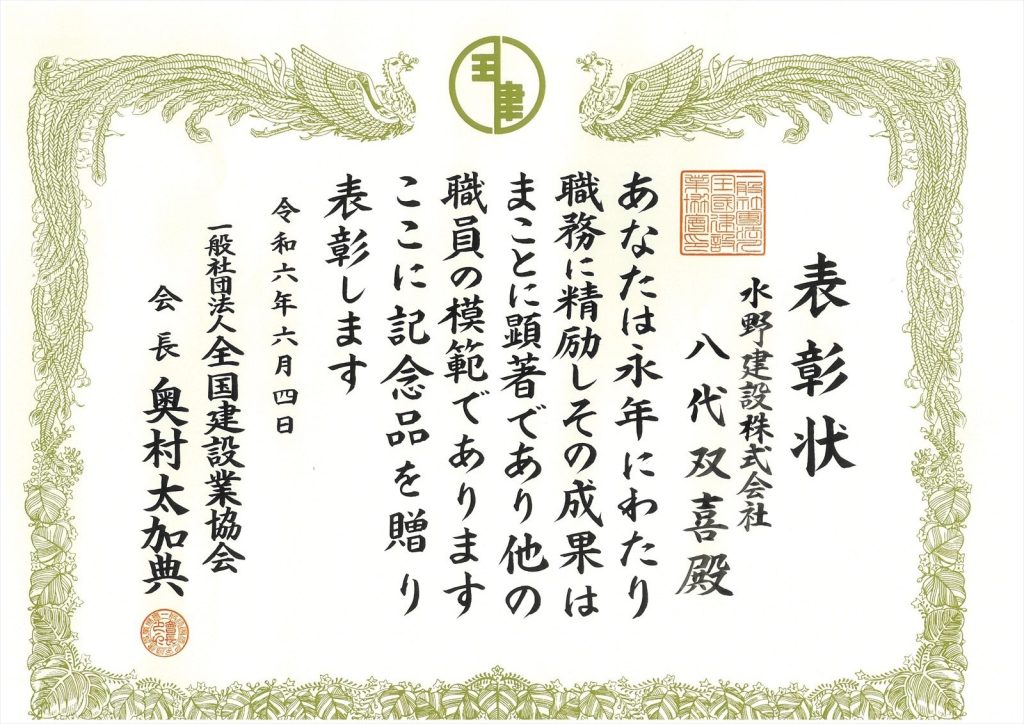 表彰状
水野建設株式会社
八代双喜殿
あなたは永年にわたり
職務に精励しその成果は
まことに顕著であり他の
職員の模範であります
ここに記念品を贈り
表彰します
令和六年六月四日
一般社団法人全国建設業協会
会長 奥村太加典